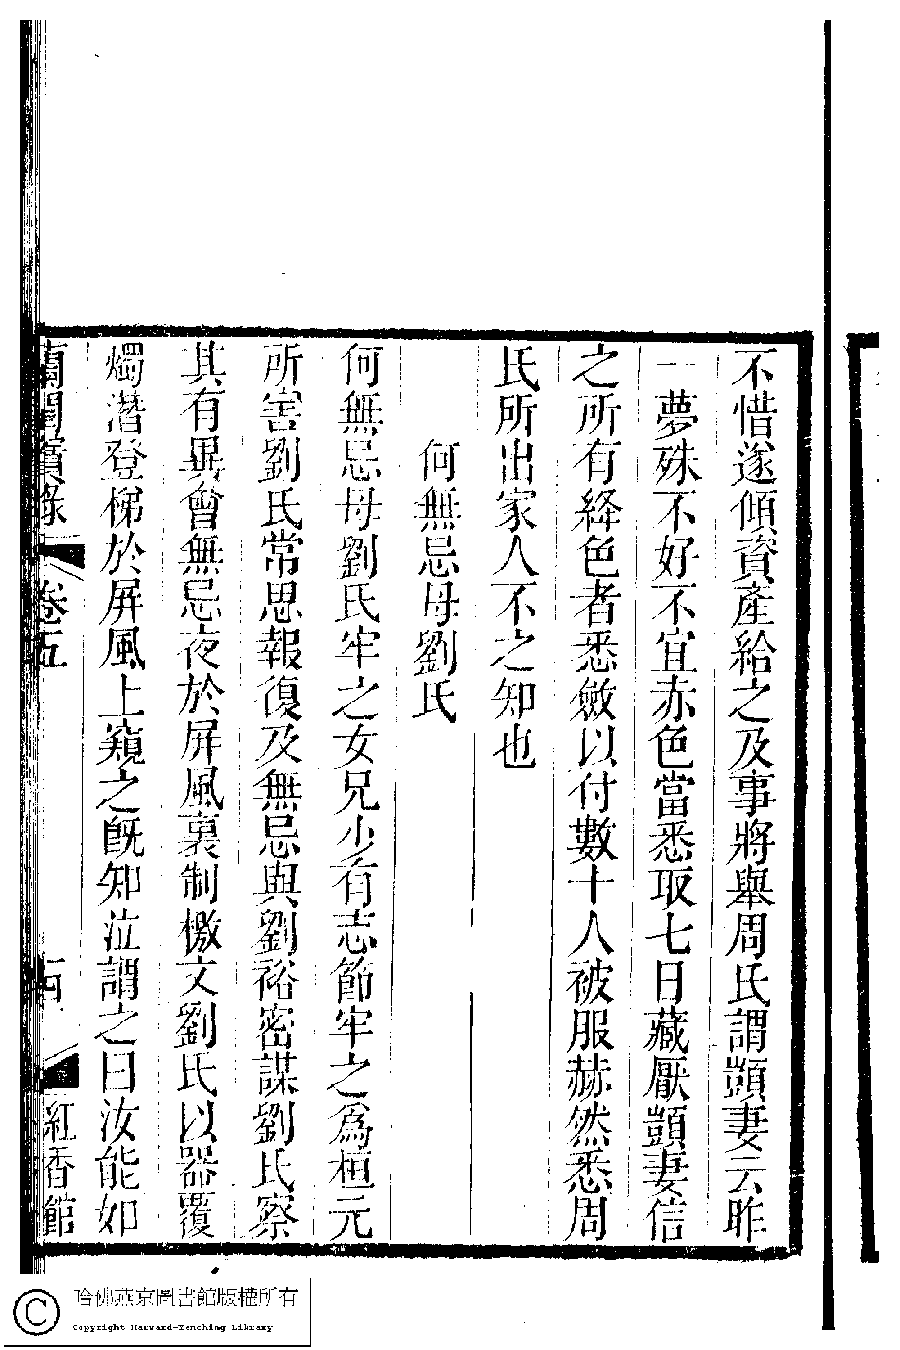 不惜遂傾資產給之及事將舉周氏謂顗妻云昨
一夢殊不好不宜赤色當悉取七日藏厭顗妻信
之所有絳色者悉斂以付數十人被服赫然悉周
氏所出家人不之知也
何無忌母劉氏
何無忌母劉氏牢之女兄少有志節牢之爲桓元
所害劉氏常思報復及無忌與劉裕密謀劉氏察
其有異會無忌夜於屏風裏制檄文劉氏以器覆
燭潛登梯於屏風上窺之旣知泣謂之曰汝能如
蘭閨寶錄 卷五 紅香館
哈佛燕京圖書館版權所有
Copyright Harvard-Yenching Library